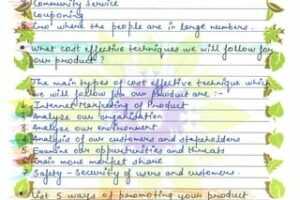 Community Service
Couponing
5. Case where the people are in large numbers.
• What cost effective techniques we will follow for
our product?
The main types of cost effective technique which
we will follow for our Product are :-
1. Internet Marketing of Product
2. Analyse our organisation
3. Analyse our environment
4. Analysis of our customers and stakeholders
5. Examine our opportunities and threats
6. Main more market share
7. Safety - Security of users and customers.
• List 5 ways of promoting your product.